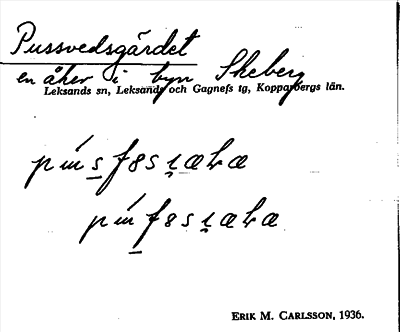 Pussvedsgärdet
en åker i byn Skeberg
Leksands sn, Leksands och Gagnefs tg, Kopparbergs län.
ERIK M. CARLSSON, 1936.